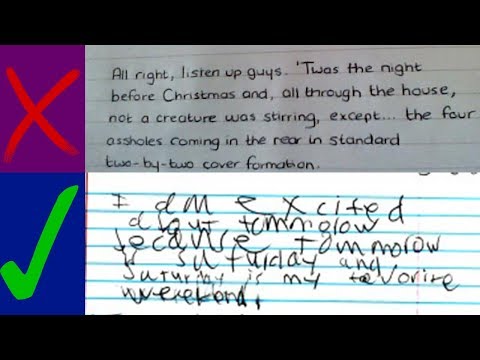 All right, listen up guys. 'Twas the night
before Christmas and, all through the house,
not a creature was stirring, except... the four
assholes coming in the rear in standard
two-by-two cover formation.
I am excited
about tommorow
because tommorow
is saturday and
saturday is my favorite
weekend.